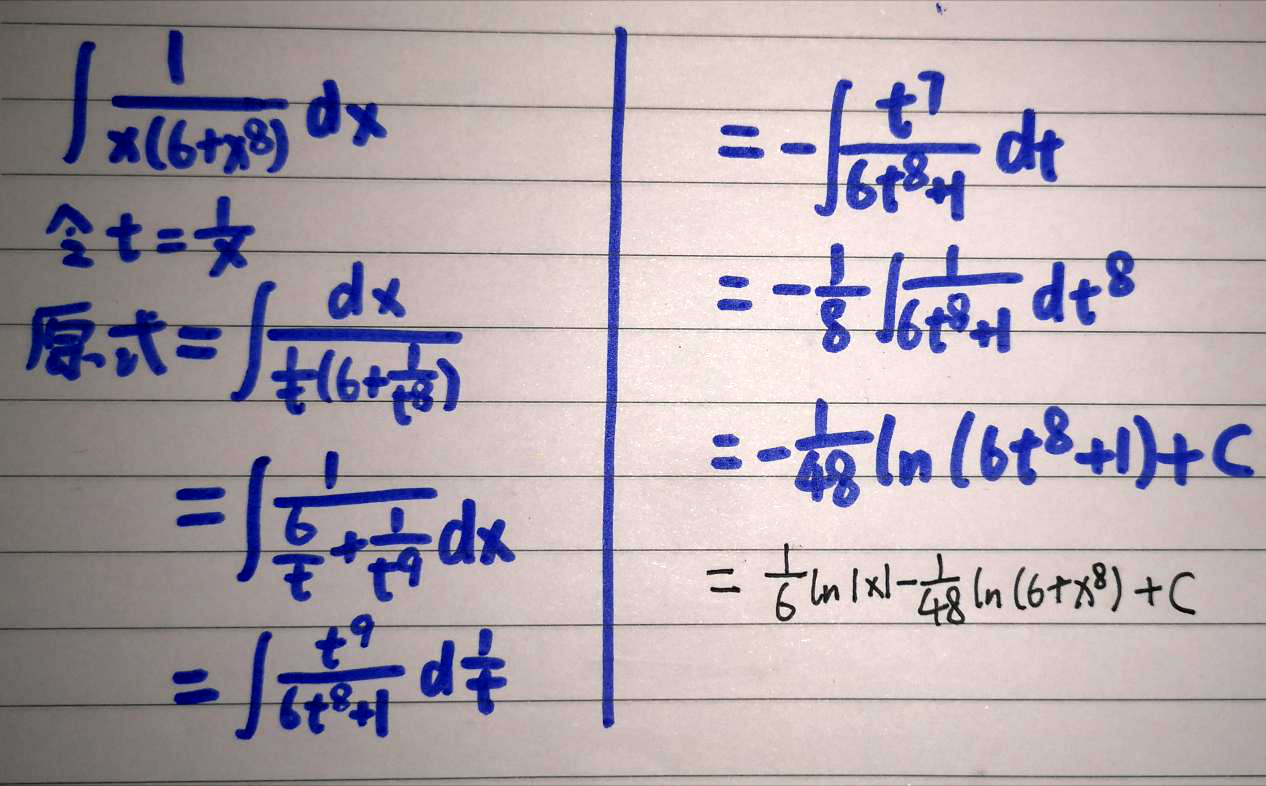 ∫ 1/(x(6+x⁸)) dx
令 t = 1/x
原式 = ∫ dx/(1/t(6+1/t⁸))
= ∫ 1/(6/t + 1/t⁹) dx
= ∫ t⁹/(6t⁸+1) d 1/t
= -∫ t⁷/(6t⁸+1) dt
= -1/8 ∫ 1/(6t⁸+1) dt⁸
= -1/48 ln(6t⁸+1)+C
= 1/6 ln|x| - 1/48 ln(6+x⁸)+C